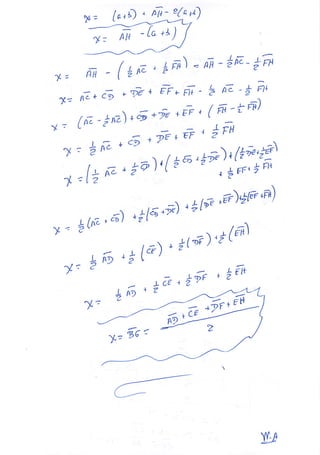 x = (a+b) + AH - 2(a+b)
x = AH - (a+b)
x = AH - (1/2 AC + 1/2 FH) = AH - 1/2 AC - 1/2 FH
x = AC + CD + DE + EF + FH - 1/2 AC - 1/2 FH
x = (AC - 1/2 AC) + CD + DE + EF + (FH - 1/2 FH)
x = 1/2 AC + CD + DE + EF + 1/2 FH
x = (1/2 AC + 1/2 CD) + (1/2 CD + 1/2 DE) + (1/2 DE + 1/2 EF)
+ 1/2 EF + 1/2 FH
x = 1/2 (AC + CD) + 1/2 (CD + DE) + 1/2 (DE + EF) + 1/2 (EF + FH)
x = 1/2 AD + 1/2 (CE) + 1/2 (DF) + 1/2 (EH)
x = 1/2 AD + 1/2 CE + 1/2 DF + 1/2 EH
x = BG = AD + CE + DF + EH / 2
W.A